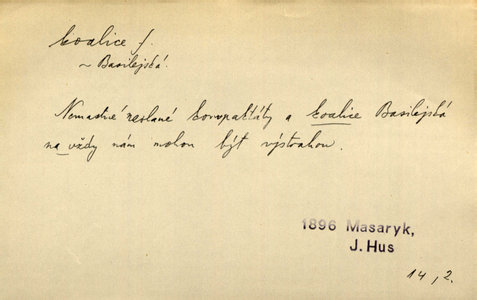 koalice f.
~ Basilejská.
Nemastné neslané kompaktáty a koalice Basilejská
na vždy nám mohou být výstrahou.
1896 Masaryk,
J. Hus
14, 2.